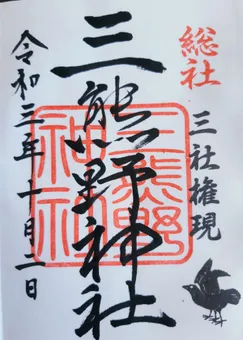 総社
三社権現
三熊野神社
三熊野神社
令和三年十月二日